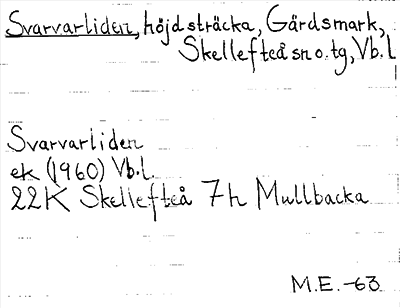 Svarvarliden, höjdsträcka, Gårdsmark,
Skellefteå sn o. tg, Vb. l
Svarvarliden
ek (1960) Vb. l.
22K Skellefteå 7h Mullbacka
M.E. -63